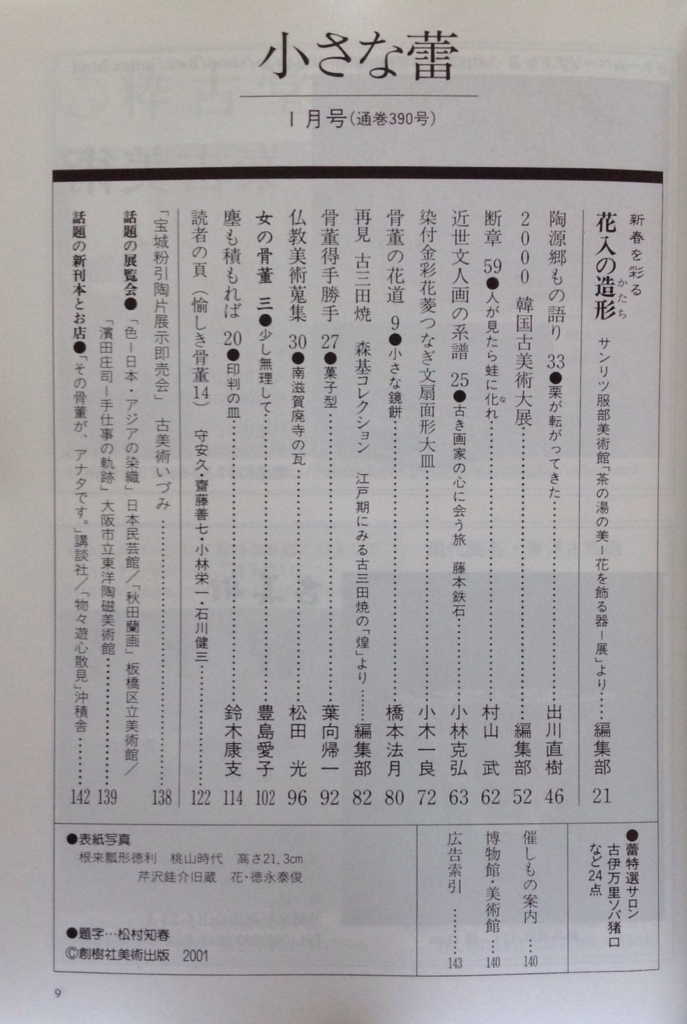 小さな蕾
1月号(通巻390号)
新春を彩る
花入の造形 かたち サンリツ服部美術館「茶の湯の美ー花を飾る器ー展」より……編集部 21
陶源郷もの語り 33●栗が転がってきた……出川直樹 46
2000 韓国古美術大展……編集部 52
断章 59●人が見たら蛙に化れ な……村山 武 62
近世文人画の系譜 25●古き画家の心に会う旅 藤本鉄石……小林克弘 63
染付金彩花菱つなぎ文扇面形大皿……小木一良 72
骨董の花道 9●小さな鏡餅……橋本法月 80
再見 古三田焼 森基コレクション 江戸期にみる古三田焼の「煌」より……編集部 82
骨董得手勝手 27●菓子型……葉向帰一 92
仏教美術蒐集 30●南滋賀廃寺の瓦……松田 光 96
女の骨董 三●少し無理して……豊島愛子 102
塵も積もれば 20●印判の皿……鈴木康支 114
読者の頁(愉しき骨董14) 守安久・齋藤善七・小林栄一・石川健三……122
「宝城粉引陶片展示即売会」 古美術いづみ……138
話題の展覧会●「色ー日本・アジアの染織」日本民芸館/「秋田蘭画」板橋区立美術館/
「濱田庄司ー手仕事の軌跡」大阪市立東洋陶磁美術館……139
話題の新刊本とお店●「その骨董が、アナタです。」講談社/「物々遊心散見」沖積舎……142
●蕾特選サロン
古伊万里ソバ猪口
など24点
催しもの案内……140
博物館・美術館……140
広告索引……143
●表紙写真
根来瓢形徳利 桃山時代 高さ21.3cm
芹沢銈介旧蔵 花・徳永泰俊
●題字…松村知春
©創樹社美術出版 2001
9